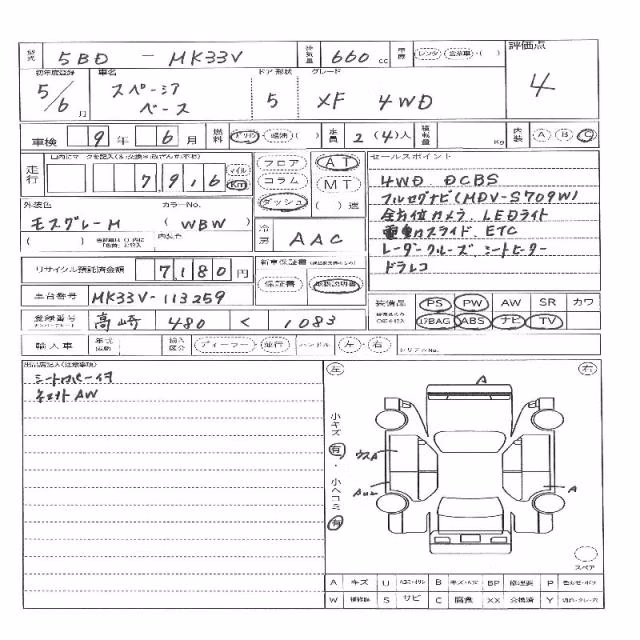 型式 5BD - MK33V 排気量 660 cc 車歴 レンタ・営業車・( ) 評価点
初年度登録 車名 ドア 形状 グレード
5/6月 スペーシア ベース 5 XF 4WD 4
車検 9年 6月 燃料 ガソリン・軽油( ) 定員 2(4)人 積載量 Kg 内装 A B C
走行 7,916 マイル Km
フロア コラム ダッシュ
AT MT ( )速
セールスポイント
4WD DCBS
フルセグナビ(MDV-S709W)
全方位カメラ.LEDライト
電動スライド.ETC
レーダークルーズ.シートヒーター
ドラレコ
外装色 カラーNo.
モスグレーM (WBW)
( ) 内装色
冷房 AAC
リサイクル預託済金額 7180円
新車保証書
保証書 取扱説明書
車台番号 MK33V-113259
装備品 PS PW AW SR カワ
17BAG ABS ナビ TV
登録番号 ナンバープレート 高崎 480 く 1083
輸入車 年式 輸入区分 ディーラー・並行 ハンドル 左・右 シリアルNo.
出品店記入(注意事項)
シートカバー付
社外AW
左 右
小キズ 有・小ヘコミ 有
A
ウスA
A
スペア
A キズ U B BP 修理要 P
W 補修跡 S サビ C 腐食 XX 交換済 Y